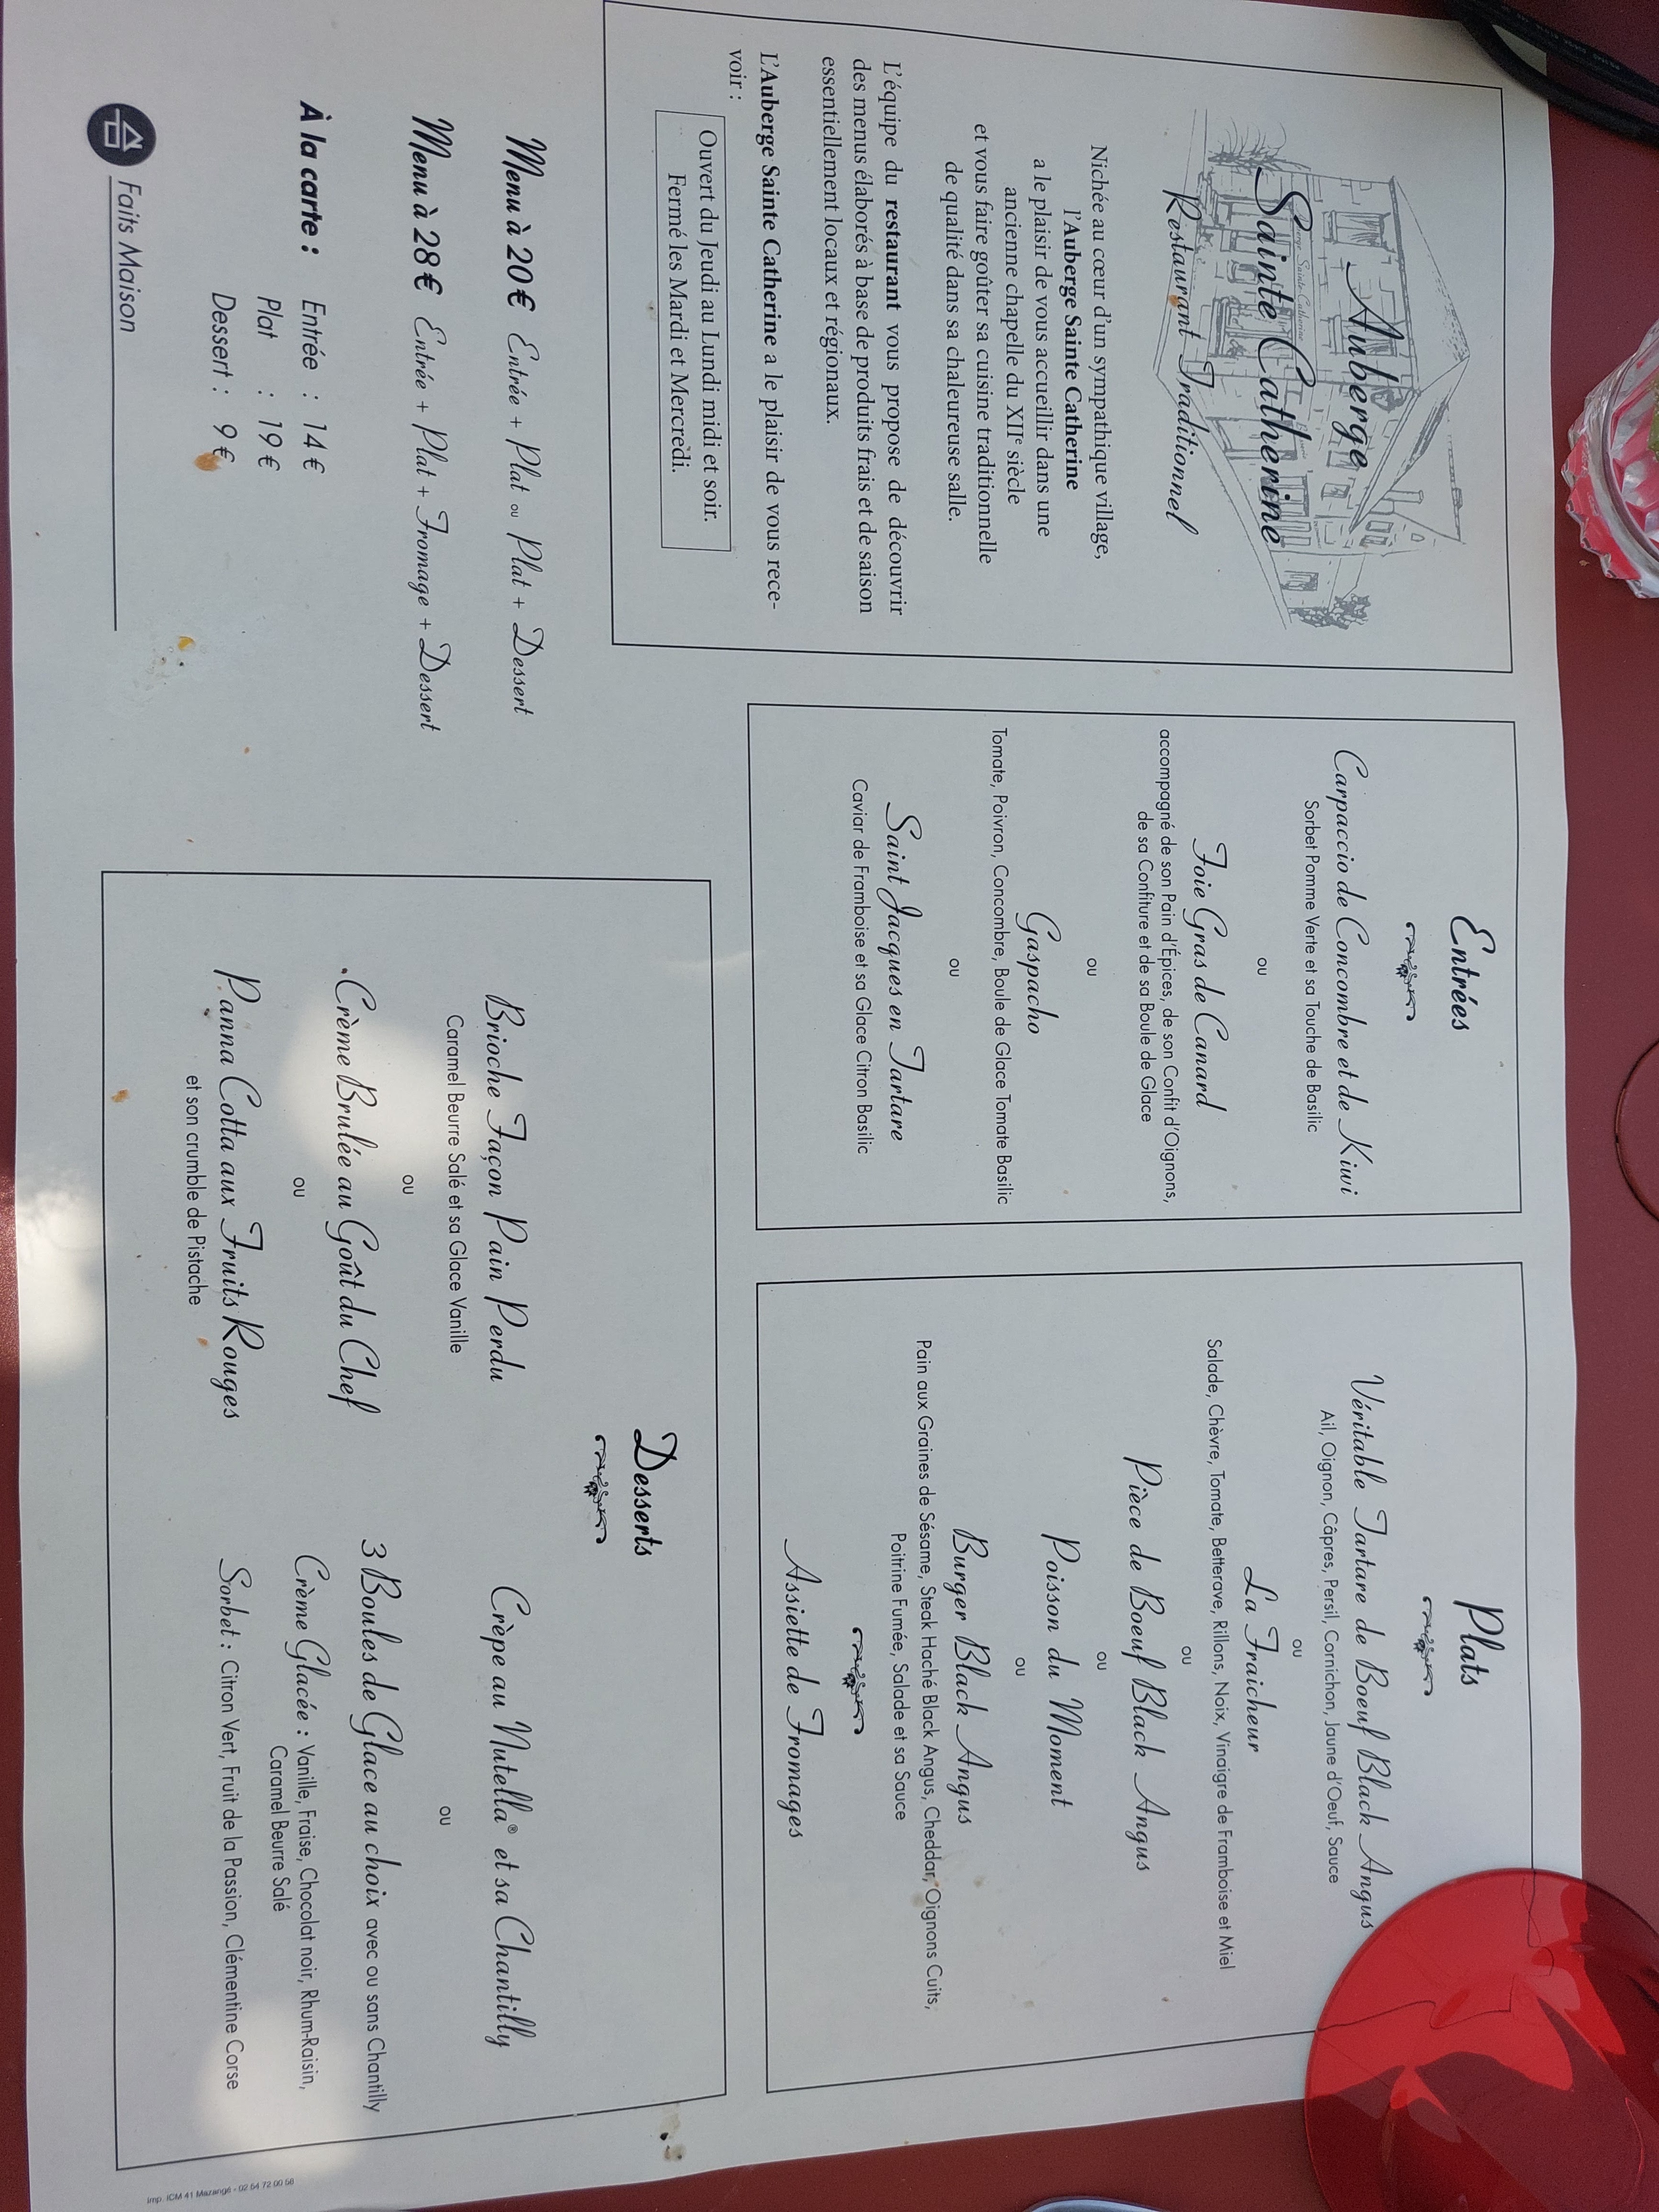 Auberge
Sainte Catherine
Restaurant Traditionnel
Nichée au cœur d'un sympathique village,
l'Auberge Sainte Catherine
a le plaisir de vous accueillir dans une
ancienne chapelle du XIIe siècle
et vous faire goûter sa cuisine traditionnelle
de qualité dans sa chaleureuse salle.
L'équipe du restaurant vous propose de découvrir
des menus élaborés à base de produits frais et de saison
essentiellement locaux et régionaux.
L'Auberge Sainte Catherine a le plaisir de vous rece-
voir :
Ouvert du Jeudi au Lundi midi et soir.
Fermé les Mardi et Mercredi.
Menu à 20€ Entrée + Plat ou Plat + Dessert
Menu à 28€ Entrée + Plat + Fromage + Dessert
À la carte : Entrée : 14 €
Plat : 19 €
Dessert : 9 €
Faits Maison
Entrées
Carpaccio de Concombre et de Kiwi
Sorbet Pomme Verte et sa Touche de Basilic
ou
Foie Gras de Canard
accompagné de son Pain d'Épices, de son Confit d'Oignons,
de sa Confiture et de sa Boule de Glace
ou
Gaspacho
Tomate, Poivron, Concombre, Boule de Glace Tomate Basilic
ou
Saint Jacques en Tartare
Caviar de Framboise et sa Glace Citron Basilic
Plats
Véritable Tartare de Boeuf Black Angus
Ail, Oignon, Câpres, Persil, Cornichon, Jaune d'Oeuf, Sauce
ou
La Fraicheur
Salade, Chèvre, Tomate, Betterave, Rillons, Noix, Vinaigre de Framboise et Miel
ou
Pièce de Boeuf Black Angus
ou
Poisson du Moment
ou
Burger Black Angus
Pain aux Graines de Sésame, Steak Haché Black Angus, Cheddar, Oignons Cuits,
Poitrine Fumée, Salade et sa Sauce
Assiette de Fromages
Desserts
Brioche Façon Pain Perdu
Caramel Beurre Salé et sa Glace Vanille
ou
Crème Brulée au Goût du Chef
ou
Panna Cotta aux Fruits Rouges
et son crumble de Pistache
Crèpe au Nutella® et sa Chantilly
ou
3 Boules de Glace au choix avec ou sans Chantilly
Crème Glacée : Vanille, Fraise, Chocolat noir, Rhum-Raisin,
Caramel Beurre Salé
Sorbet : Citron Vert, Fruit de la Passion, Clémentine Corse
Imp. ICM 41 Mazangé - 02 54 72 00 56